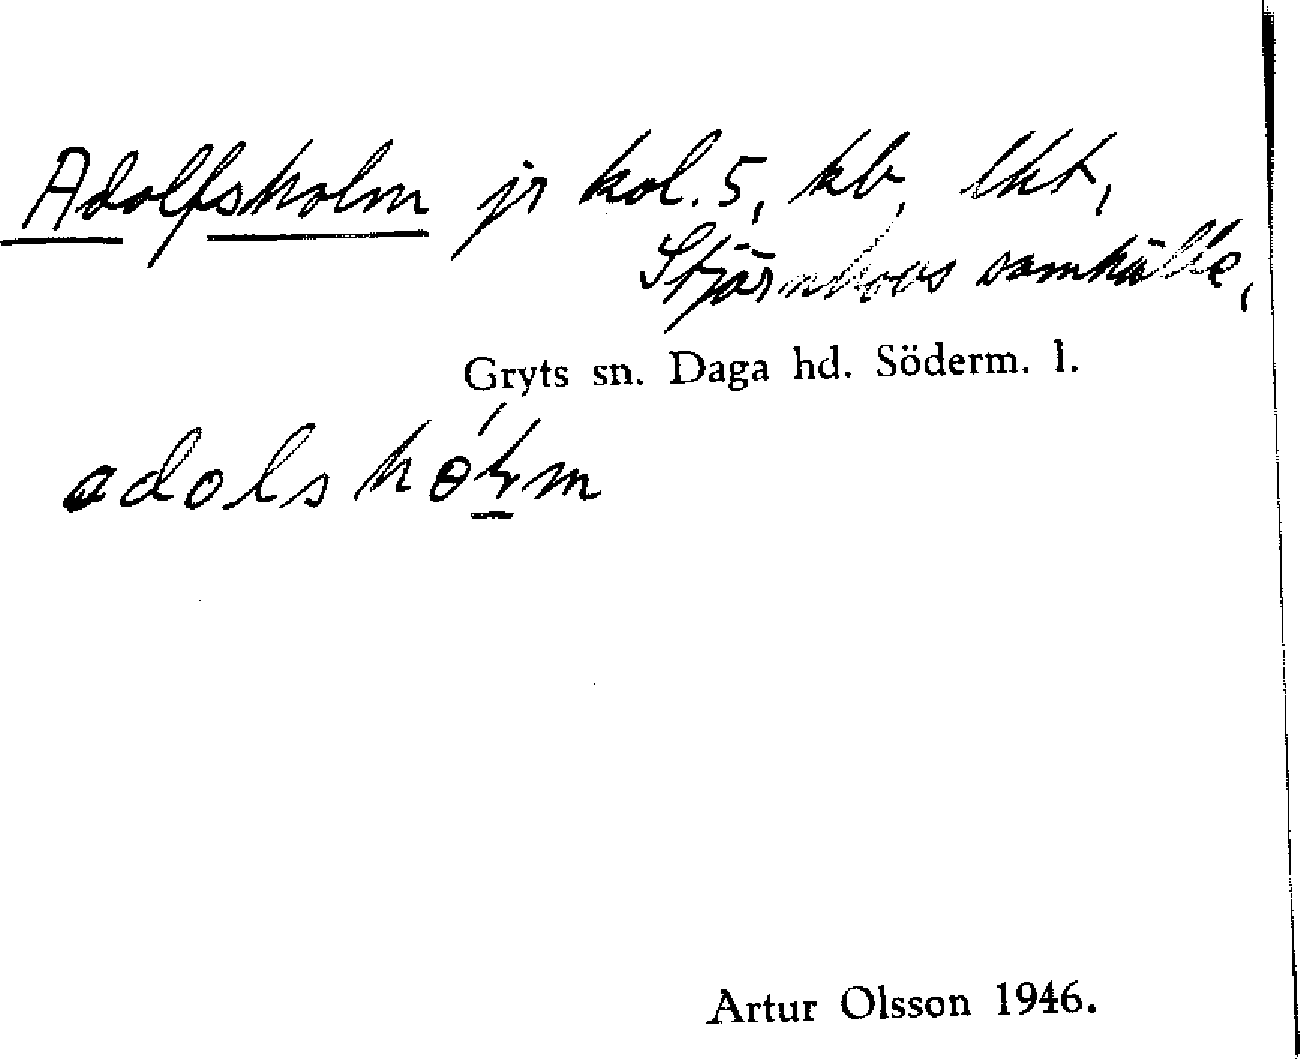 Adolfsholm jr kol. 5, kb, lkt,
Stjärnhovs samhälle,
Gryts sn. Daga hd. Söderm. l.
Artur Olsson 1946.